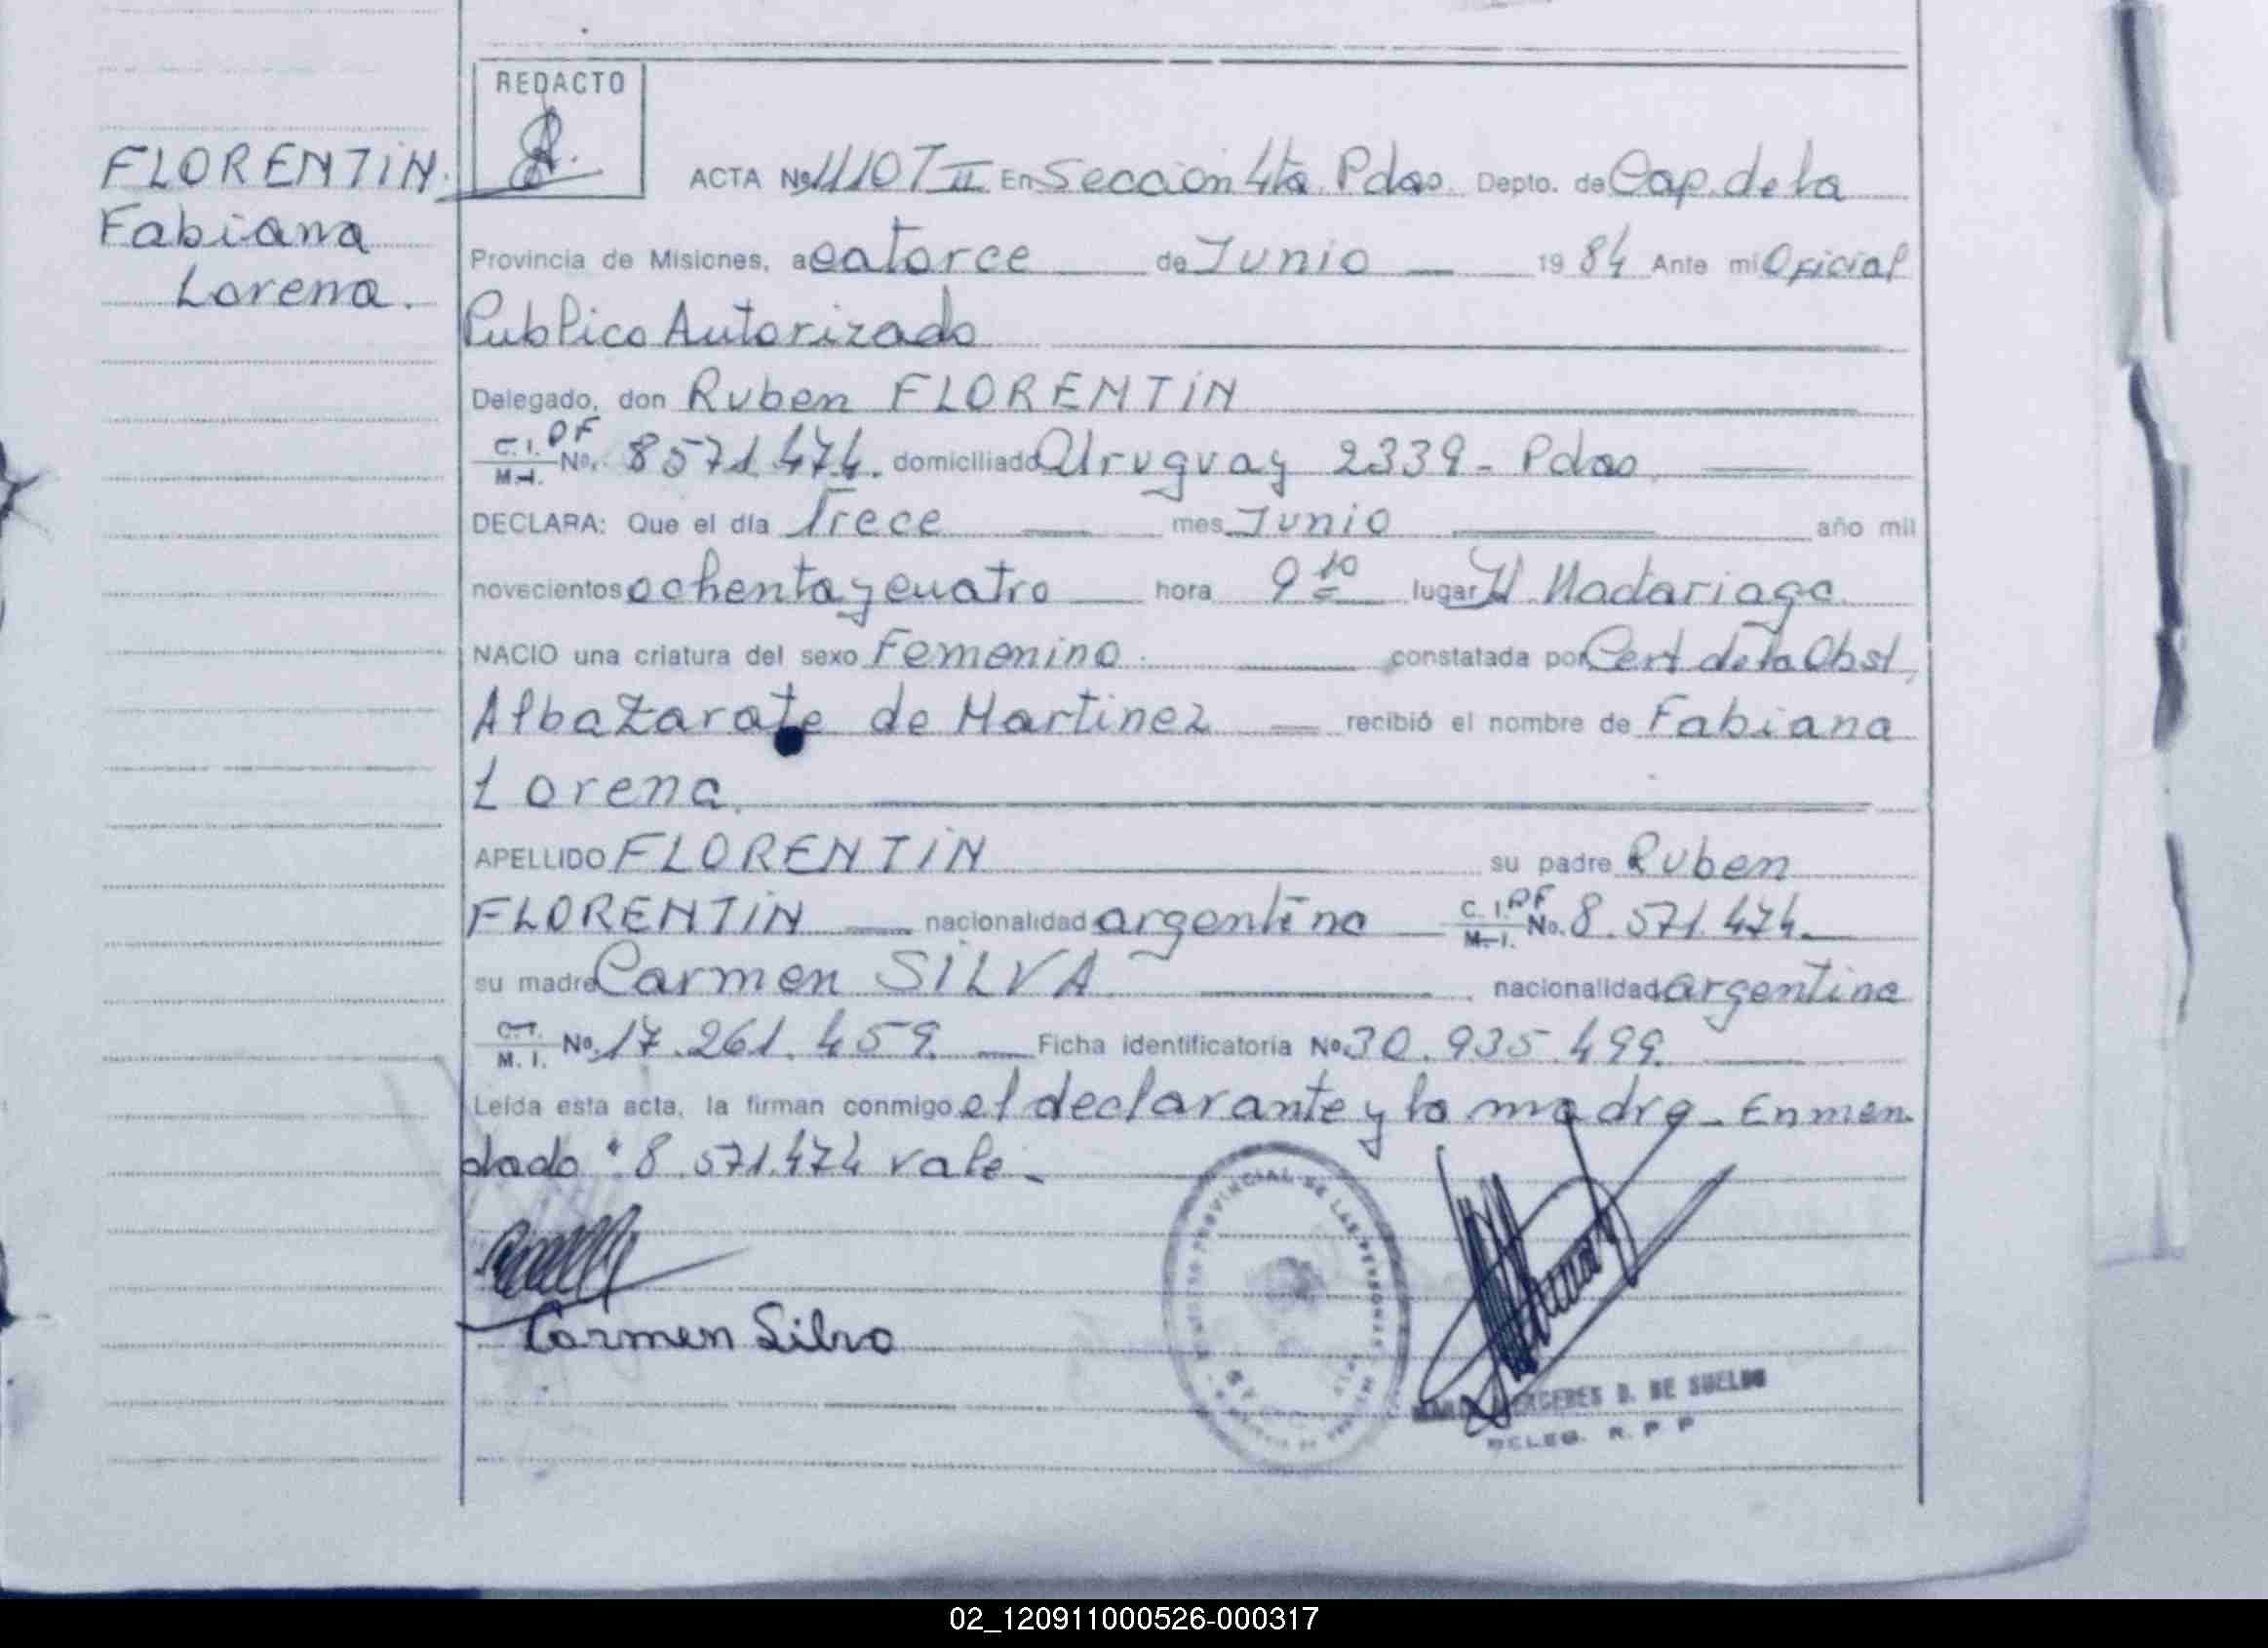 REDACTO
FLORENTIN.
Fabiana
Lorena.
ACTA Nº 1110 T II En Seccion 4ta Pdas. Depto. de Cap. de la
Provincia de Misiones, a catorce de Junio 19 84 Ante mi Oficial
Publico Autorizado
Delegado, don Ruben FLORENTIN
C.I. PF M.I. No. 8571.474. domiciliado Uruguay 2339 - Pdas
DECLARA: Que el día Trece mes Junio año mil
novecientos ochenta y cuatro hora 9 10 lugar H. Madariaga
NACIO una criatura del sexo Femenino constatada por Cert de la Obst,
Alba Zarate de Martinez recibió el nombre de Fabiana
Lorena.
APELLIDO FLORENTIN su padre Ruben
FLORENTIN nacionalidad argentina C.I. PF M.I. No. 8.571.474.
su madre Carmen SILVA nacionalidad argentina
C.I. M.I. No. 17.261.459 Ficha identificatoria No 30.935.499.
Leída esta acta, la firman conmigo el declarante y la madre - Enmen
dado "8.571.474 vale.-
Carmen Silva
PROVINCIAL DE LAS PERSONAS
D. DE SUELDO
DELEG. R. P P
02_120911000526-000317